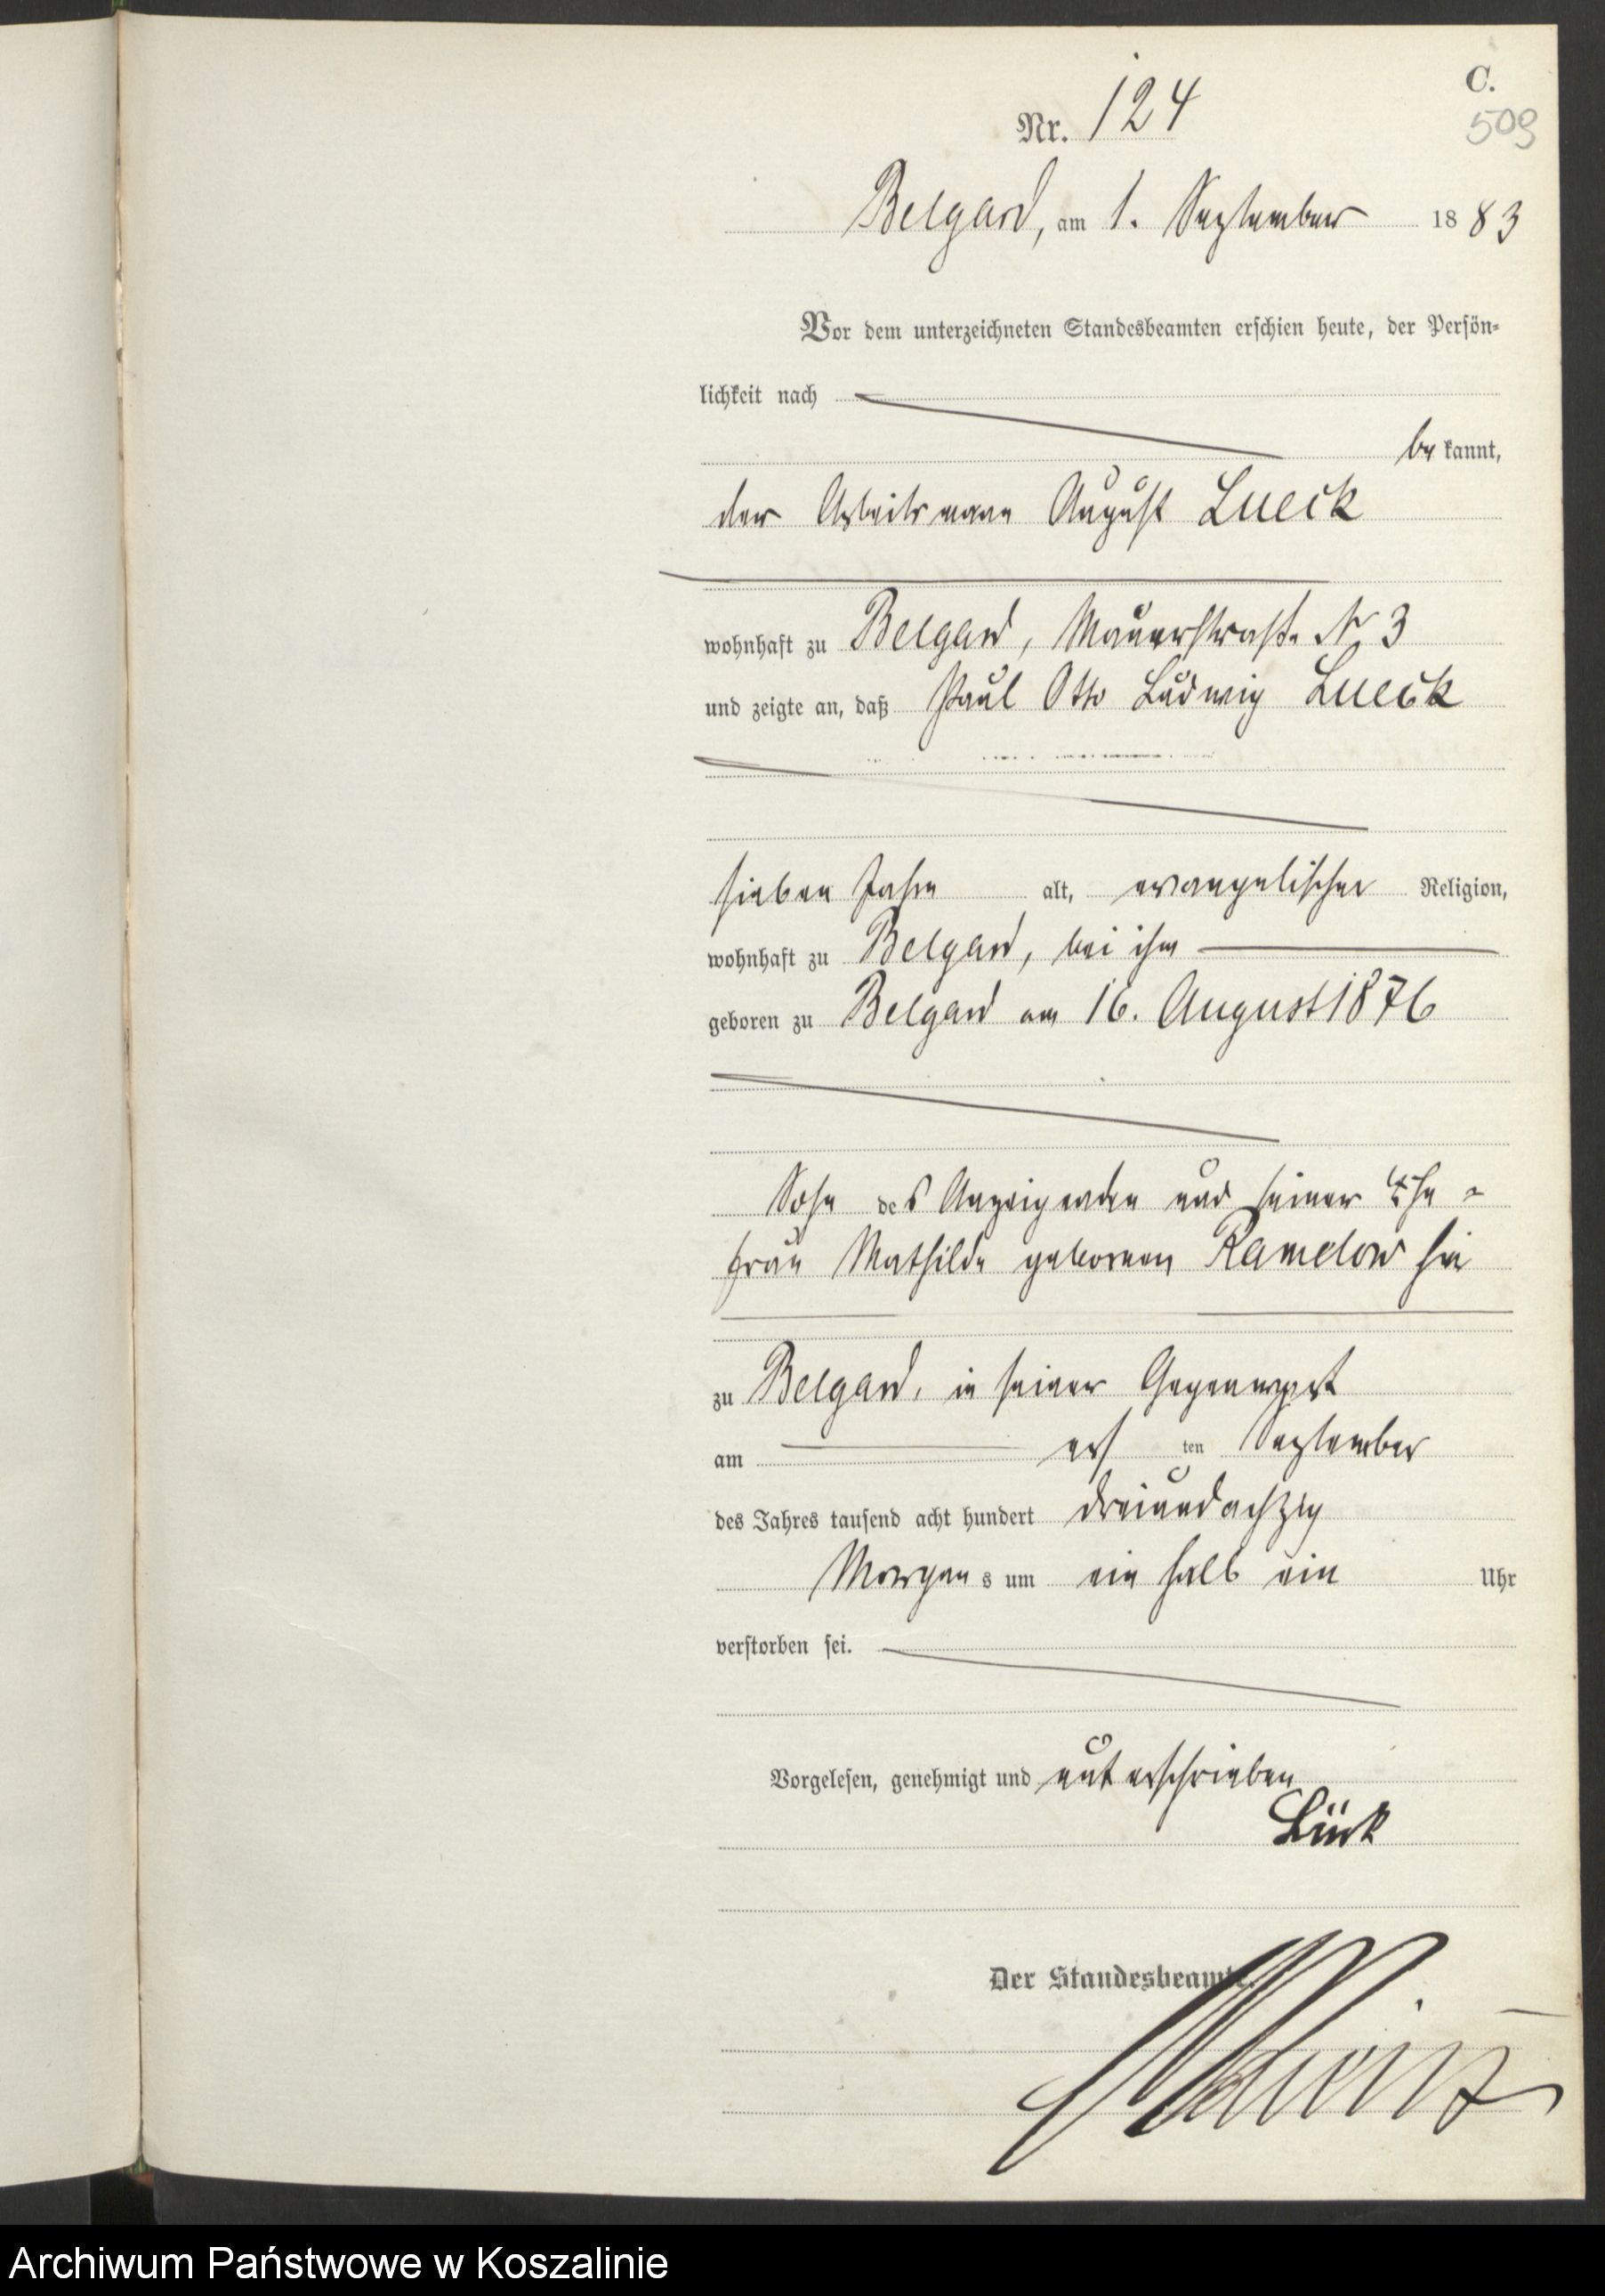 C.
509
Nr. 124
Belgard, am 1. September 1883
Vor dem unterzeichneten Standesbeamten erschien heute, der Persön-
lichkeit nach
be kannt,
der Arbeitsmann August Lueck
wohnhaft zu Belgard, Mauerstraße No 3
und zeigte an, daß Paul Otto Ludwig Lueck
sieben Jahre alt, evangelischer Religion,
wohnhaft zu Belgard, bei ihm
geboren zu Belgard am 16. August 1876
Sohn des Anzeigenden und seiner Ehe-
frau Mathilde geborenen Ramelow hie
zu Belgard, in seiner Gegenwart
am ersten September
des Jahres tausend acht hundert dreiundachtzig
Morgens um ein halb ein Uhr
verstorben sei.
Vorgelesen, genehmigt und unterschrieben
Lück
Der Standesbeamte.
Archiwum Państwowe w Koszalinie